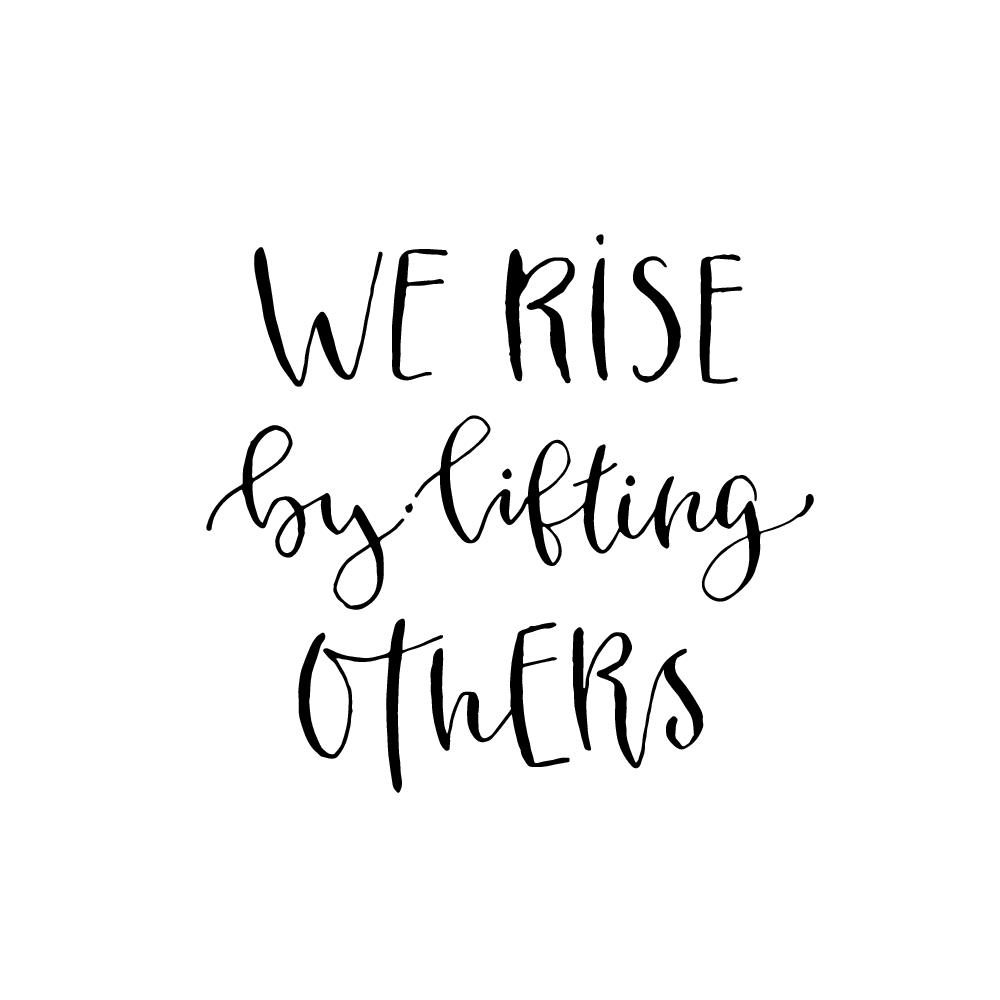 WE RiSE
by lifting
OthERS